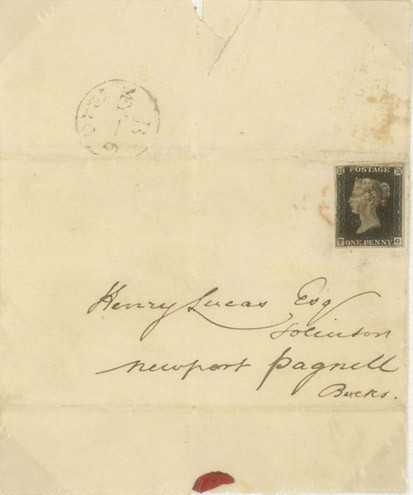 POSTAGE
ONE PENNY
Henry Lucas Esq
Solicitor
Newport Pagnell
Bucks.